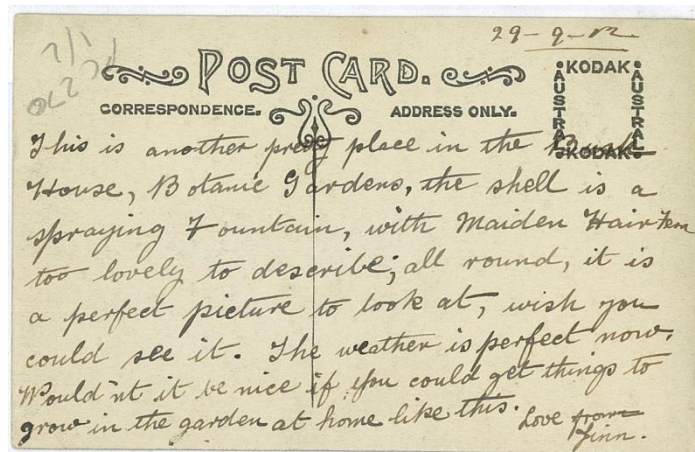 29-9-12
POST CARD.
CORRESPONDENCE.
ADDRESS ONLY.
KODAK
AUSTRAL
AUSTRAL
KODAK
This is another pretty place in the Bush
House, Botanic Gardens, the shell is a
spraying Fountain, with Maiden Hair Fern
too lovely to describe; all round, it is
a perfect picture to look at, wish you
could see it. The weather is perfect now.
Would'nt it be nice if you could get things to
grow in the garden at home like this.
Love from